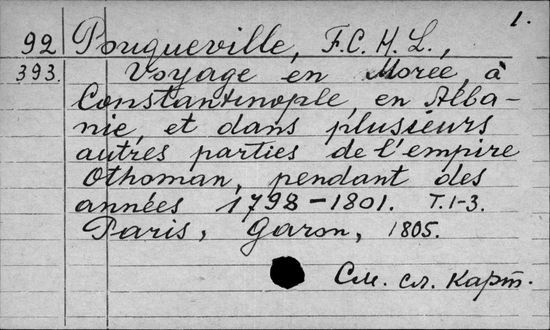 1.
92 Pouqueville, F.C.H.L.,
393. Voyage en Morée, à
Constantinople, en Alba-
nie, et dans plusieurs
autres parties de l'empire
Othoman, pendant des
années 1798-1801. T.1-3.
Paris, Garon, 1805.
См. сл. карт.